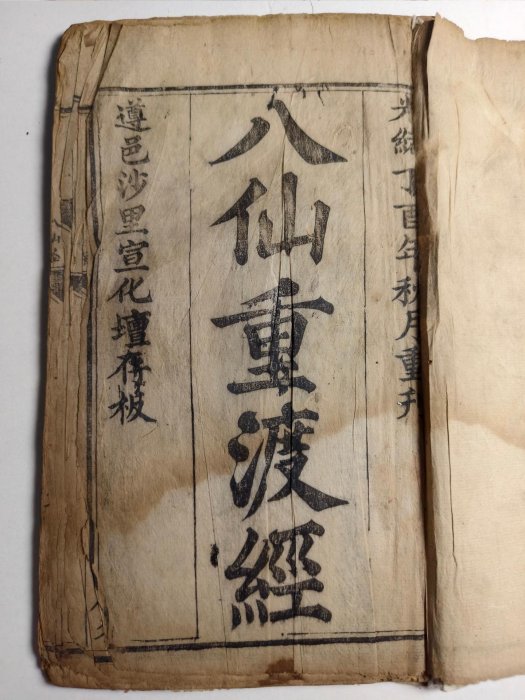 光緒丁酉年秋月重刊
八仙重渡經
遵邑沙里宣化壇存板